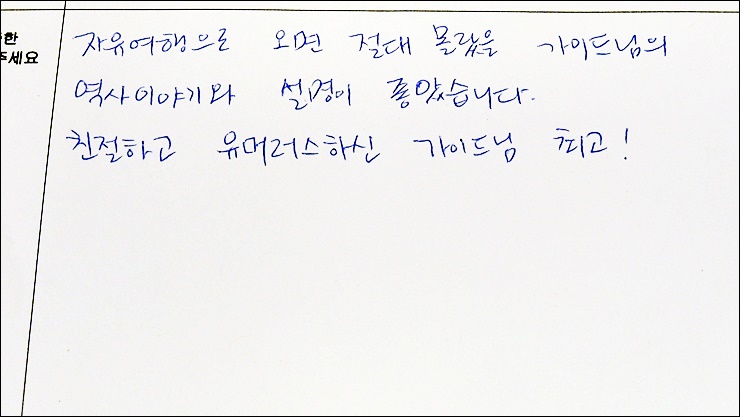 한
주세요
자유여행으로 오면 절대 몰랐을 가이드님의
역사이야기와 설경이 좋았습니다.
친절하고 유머러스하신 가이드님 최고!